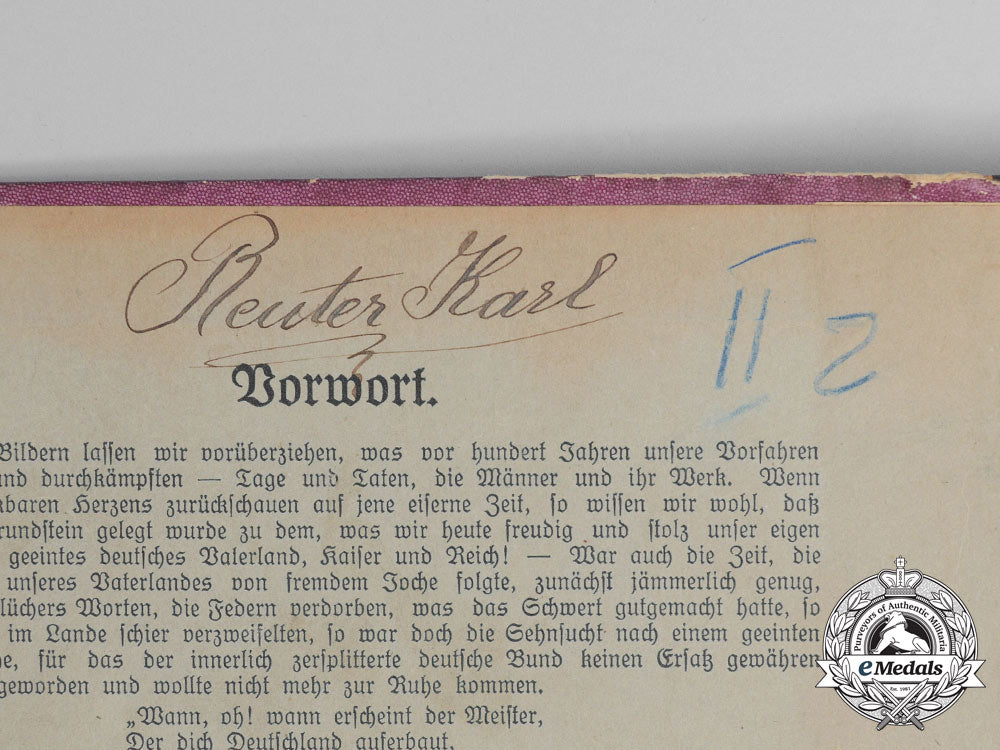 Reuter Karl
II 2
Vorwort.
Bildern lassen wir vorüberziehen, was vor hundert Jahren unsere Vorfahren
und durchkämpften — Tage und Taten, die Männer und ihr Werk. Wenn
kbaren Herzens zurückschauen auf jene eiserne Zeit, so wissen wir wohl, daß
rundstein gelegt wurde zu dem, was wir heute freudig und stolz unser eigen
geeintes deutsches Vaterland, Kaiser und Reich! — War auch die Zeit, die
unseres Vaterlandes von fremdem Joche folgte, zunächst jämmerlich genug,
lüchers Worten, die Federn verdorben, was das Schwert gutgemacht hatte, so
im Lande schier verzweifelten, so war doch die Sehnsucht nach einem geeinten
e, für das der innerlich zersplitterte deutsche Bund keinen Ersatz gewähren
geworden und wollte nicht mehr zur Ruhe kommen.
„Wann, oh! wann erscheint der Meister,
Der dich Deutschland auferbaut,
Purveyors of Authentic Militaria
eMedals
Est. 1981